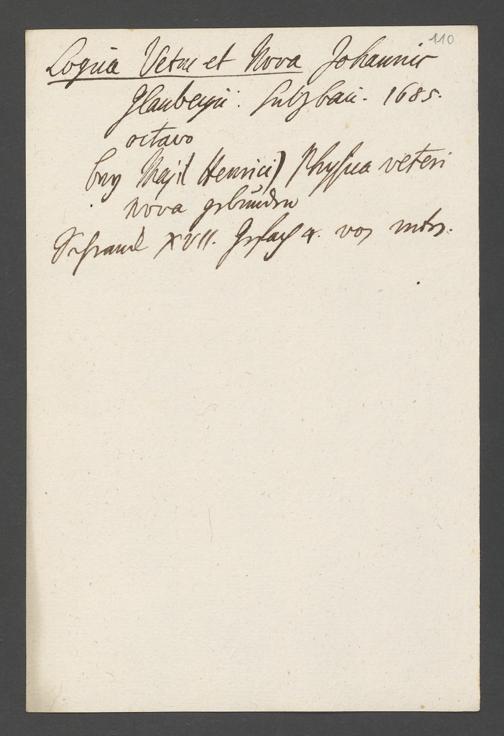 110
Logica Vetus et Nova Johannis
Claubergii. Sulzbaci. 1685.
octavo
bey Henrici) Physica veteri
nova gebunden
Schrank XVII. Gefach 4. von unten.